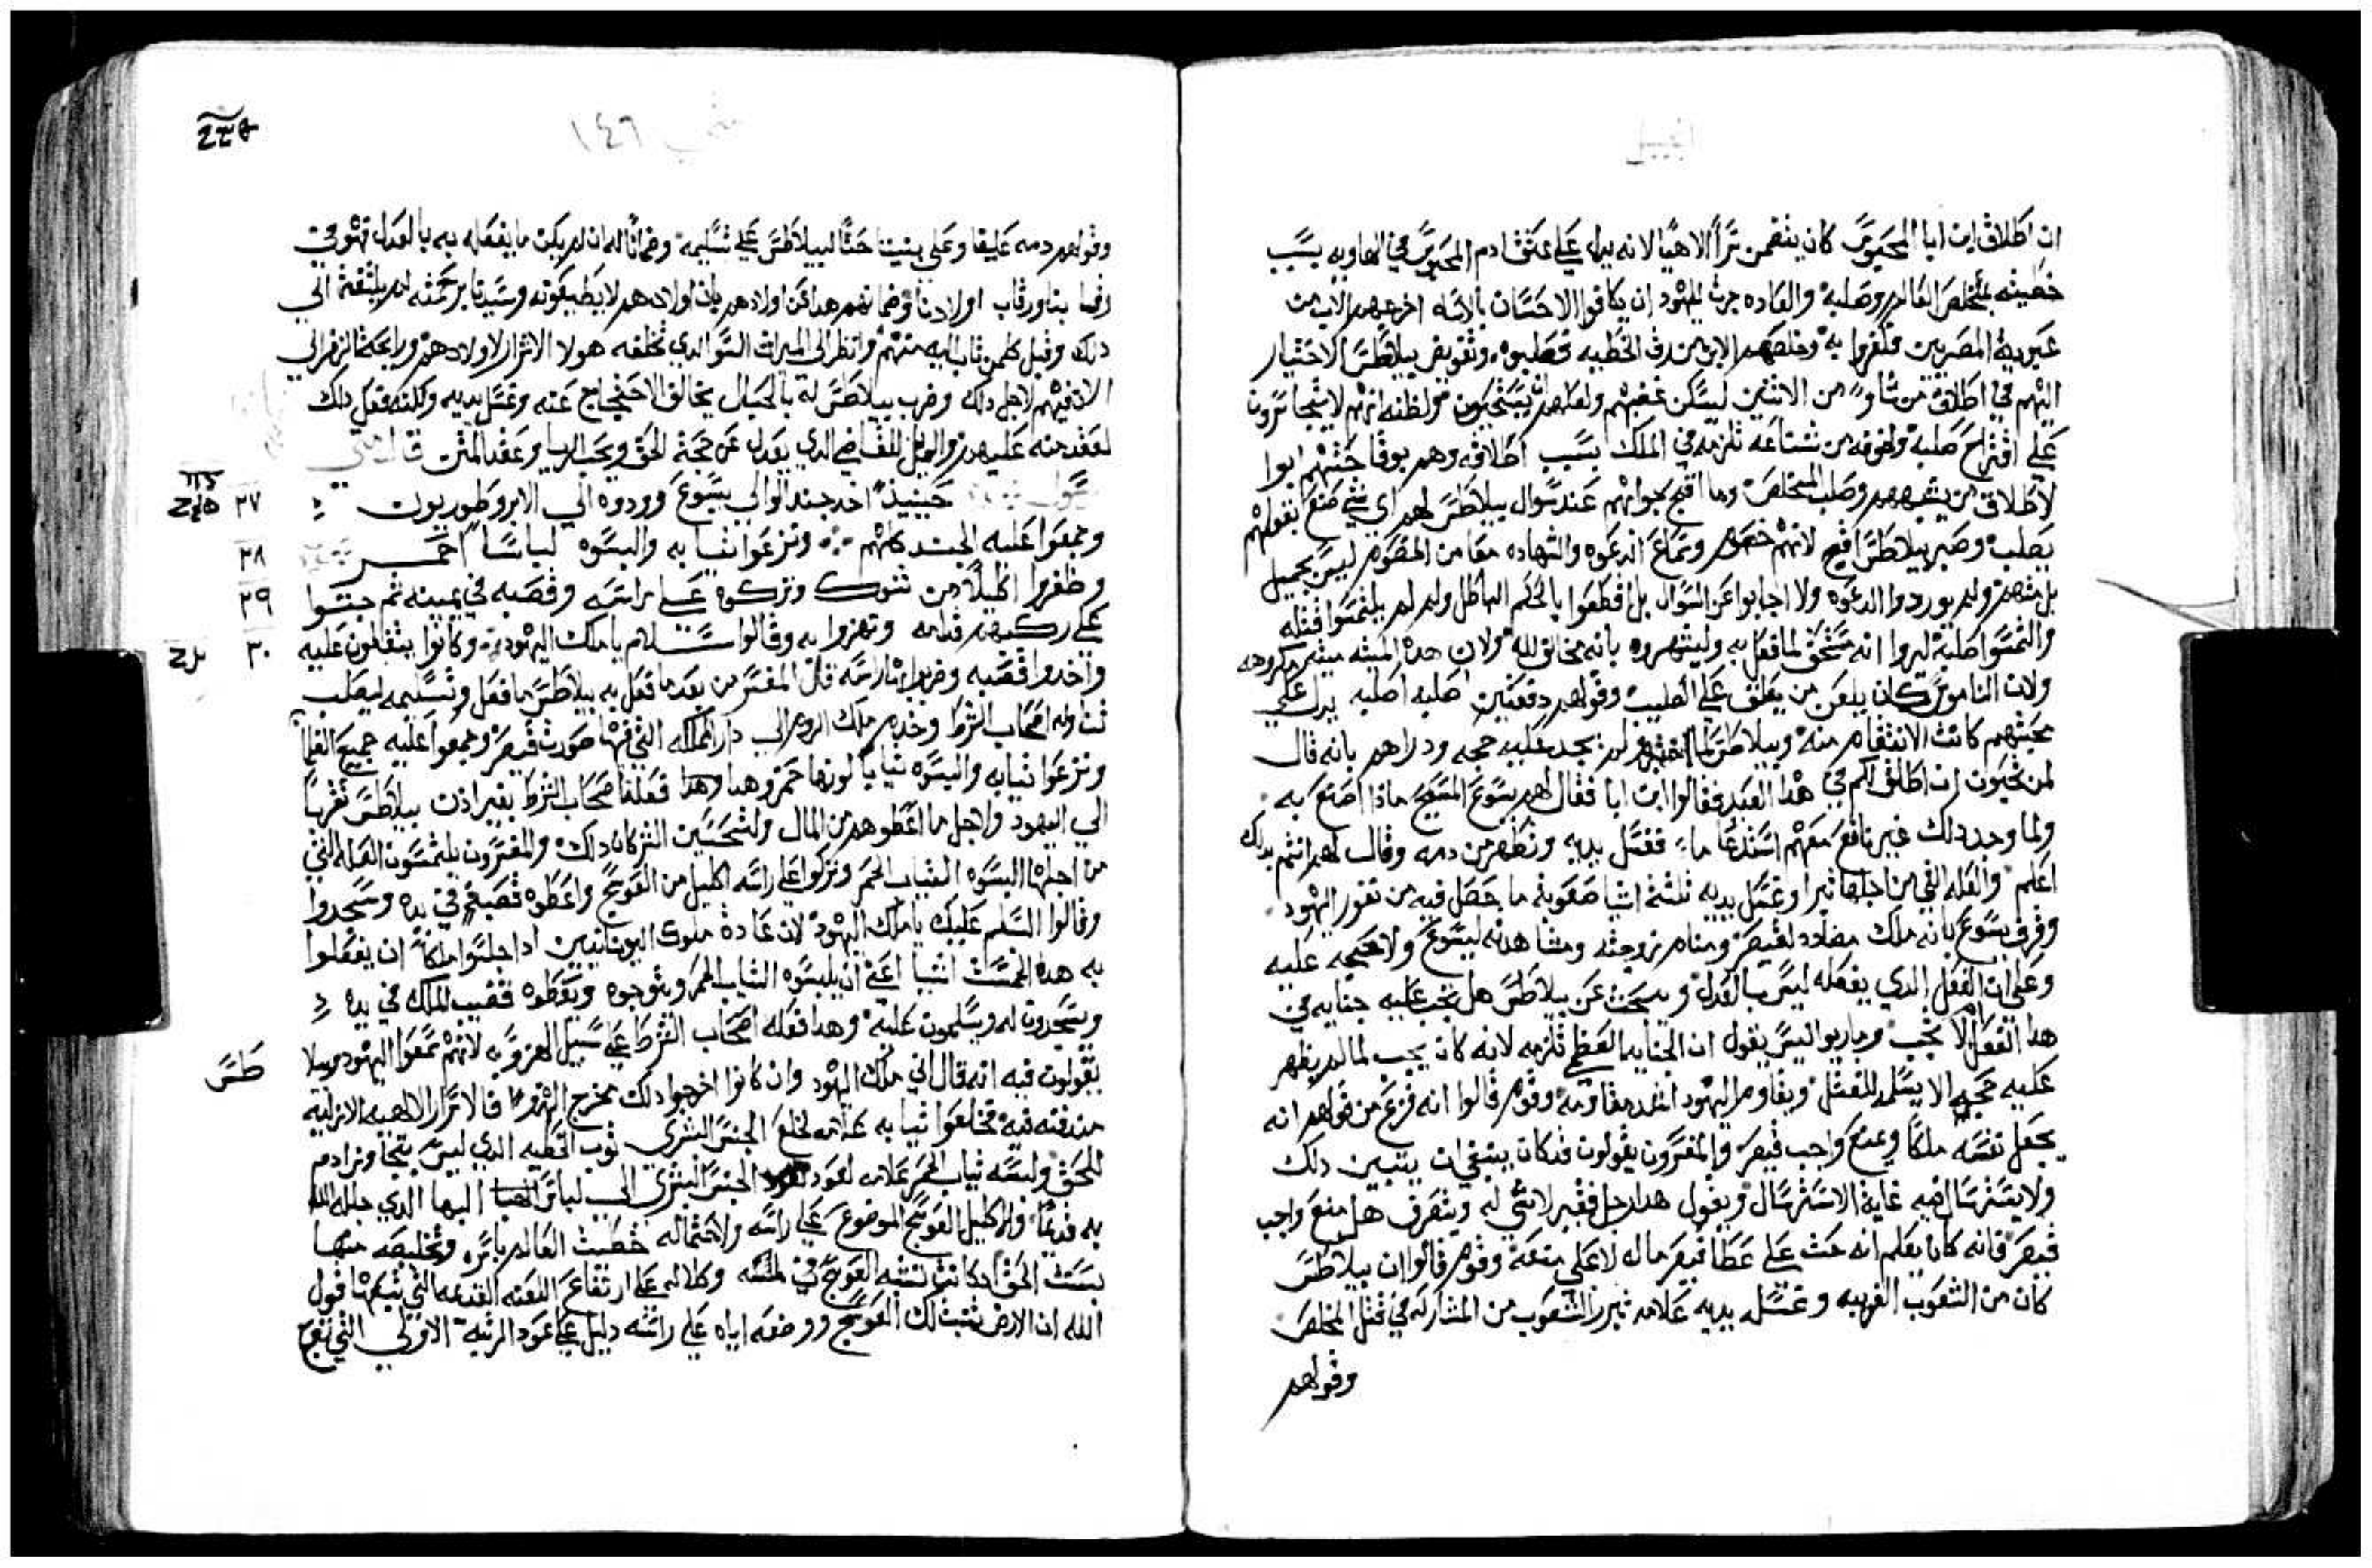 انجيل
ان اطلاق ابن ابا المحبوس كان يتضمن سرا الاهيا لانه يدل علي عتق ادم المحبوس في الهاويه بسبب
خطيته بمخلص العالم وصلبه والعاده جرت لليهود ان يكافوا الاحسان بالاساه اخرجهم الاب من
عبودية المصريين فكفروا به وخلصهم الابن من رق الخطيه فصلبوه وتفويض بيلاطس الاختيار
اليهم في اطلاق من شاو من الاثنين ليسكن غضبهم ولعلهم يستحيون ولظنه انهم لا يتجاسرون
علي اقتراح صلبه ولخوفه من شناعه تلزمه في الملك بسبب اطلاقه وهم بوقاحتهم ابوا
لاطلاق من يشبههم وصلب المخلص وما اقبح جوابهم عند سوال بيلاطس لهم اي شي صنع بقولهم
يصلب وصبر بيلاطس اقبح لانهم خصوم وسماع الدعوه والشهاده معا من الخصوم ليس بجميل
بل منهم ولم يوردوا الدعوه ولا اجابوا عن السوال بل قطعوا بالحكم الباطل ولم لم يلتمسوا قتله
والتمسوا صلبه ليروا انه مستحق لما فعل به وليشهروه بانه مخالف لله ولان هذه الميته ميته مكروهه
ولان الناموس كان يلعن من يعلق علي الصليب وقولهم دفعتين اصلبه اصلبه يدل علي
محبتهم كانت الانتقام منه وبيلاطس لما لم يجد عليه حجه ودراهم بانه قال
لمن تحبون ان اطلق لكم في هذا العيد فقالوا ابن ابا فقال لهم يسوع المسيح ماذا اصنع به
ولما وجد ذلك غير نافع معهم استدعا ماء فغسل يديه وتطهر من دمه وقال لهم انتم بذلك
اعلم والعله التي من اجلها تبرا وغسل يديه ثلثة اشيا صعوبة ما حصل فيه من تفور اليهود
وقرف يسوع بانه ملك مضادد لقيصر ومنام زوجته ومشاهدته ليسوع ولا حجه عليه
وعلي ان الفعل الذي يفعله ليس بالعدل ويسحت عن بيلاطس هل تجب عليه جنايه في
هذا الفعل ام لا تجب وماريواليس يقول ان الجنايه العظمي تلزمه لانه كان يجب لما لم يظهر
عليه حجه الا يسلمه للقتل ويقاوم اليهود اشد مقاومه وقوم قالوا انه فزع من قولهم انه
يجعل نفسه ملكا ويمنع واجب قيصر والمفسرون يقولون قد كان ينبغي ان يتبين ذلك
ولا يسترسل فيه غاية الاسترسال ويقول هذا رجل فقير لا شي له ويتعرف هل منع واجب
قيصر فانه كان يعلم انه حث علي عطا قيصر ماله لا علي منعه وقوم قالوا ان بيلاطس
كان من الشعوب الغريبه وغسله يديه علامه تبرر الشعوب من المشاركه في قتل المخلص
وقولهم
متي ١٤٦
وقولهم دمه علينا وعلي بنينا حثا لبيلاطس علي تسليمه وضمانا له ان لم يكن ما يفعله به بالعدل فهو في
رقابنا ورقاب اولادنا وضمانهم هذا عن اولادهم بان اولادهم لا يطيقونه وسيدنا برحمته لم يلتفت الي
ذلك وقبل كلمن تاب اليه منهم وانظر الي الميراث السو الذي تخلفه هولا الاشرار لاولادهم ورايحة الزفر الي
الان فيهم لاجل ذلك وضرب بيلاطس له بالحبال يخالف الاحتجاج عنه وغسل يديه ولكنه فعل ذلك
لعقد منه عليهم والويل للقاضي الذي يعدل عن حجة الحق ويحب الريا وعقد المنن قال متي
الرسول حينيذ اخذ جند الوالي يسوع وودوه الي الابروطوريون ٢٧
وجمعوا عليه الجند كلهم ونزعوا ثيابه والبسوه لباسا احمر ٢٨
وظفروا اكليلا من شوك وتركوه علي راسه وقصبه في يمينه ثم جثوا ٢٩
علي ركبهم قدامه وتهزوا به وقالوا سلام يا ملك اليهود وكانوا يتفلون عليه ٣٠
واخذوا قصبه وضربوا بها راسه قال المفسر من بعد ما فعل به بيلاطس ما فعل وتسليمه ليصلب
تناوله اصحاب الشرط وخدم ملك الروم الي دار المملكه التي فيها صورت قيصر وجمعوا عليه جميع الغلما
ونزعوا ثيابه والبسوه ثيابا لونها حمر وهذا فعله اصحاب الشرط بغير اذن بيلاطس تقربا
الي اليهود ولاجل ما اعطوهم من المال ولشحسين الشركان ذلك والمفسرون يلتمسون العله التي
من اجلها البسوه الثياب الحمر وتركوا علي راسه اكليل من العوسج واعطوه قصبة في يده وسجدوا
وقالوا السلم عليك يا ملك اليهود لان عادة ملوك اليونانيين اذا جلسوا ملكا ان يفعلوا
به هذه الخمسة اشيا اعني ان يلبسوه الثياب الحمر ويتوجوه ويعطوه قضيب الملك في يده
ويسجدون له ويسلمون عليه وهذا فعله اصحاب الشرط علي سبيل الهزو به لانهم سمعوا اليهود وبيلا
طس
يقولون فيه انه قال اني ملك اليهود وان كانوا اخرجوا ذلك مخرج الهزو فالاسرار الالاهيه الازليه
مندفنه فيه فخلعوا ثيابه علامه لخلع الجنس البشري ثوب الخطيه الذي ليس بتجاوز ادم
للحق ولبسه ثياب الحمر علامه لعود الجنس البشري الي لباس البها الذي جلله الله
به قديما والاكليل العوسج الموضوع علي راسه ولاحتماله خطيت العالم باسره وتخليصه منها
بسنن الحق اذ كانت تشبه العوسج في لمسه وكلاله علي ارتفاع اللعنه القديمه التي تتبعها قول
الله ان الارض تنبت لك العوسج ووضعه اياه علي راسه دليل علي عود الرتبه الاولي التي تتوج